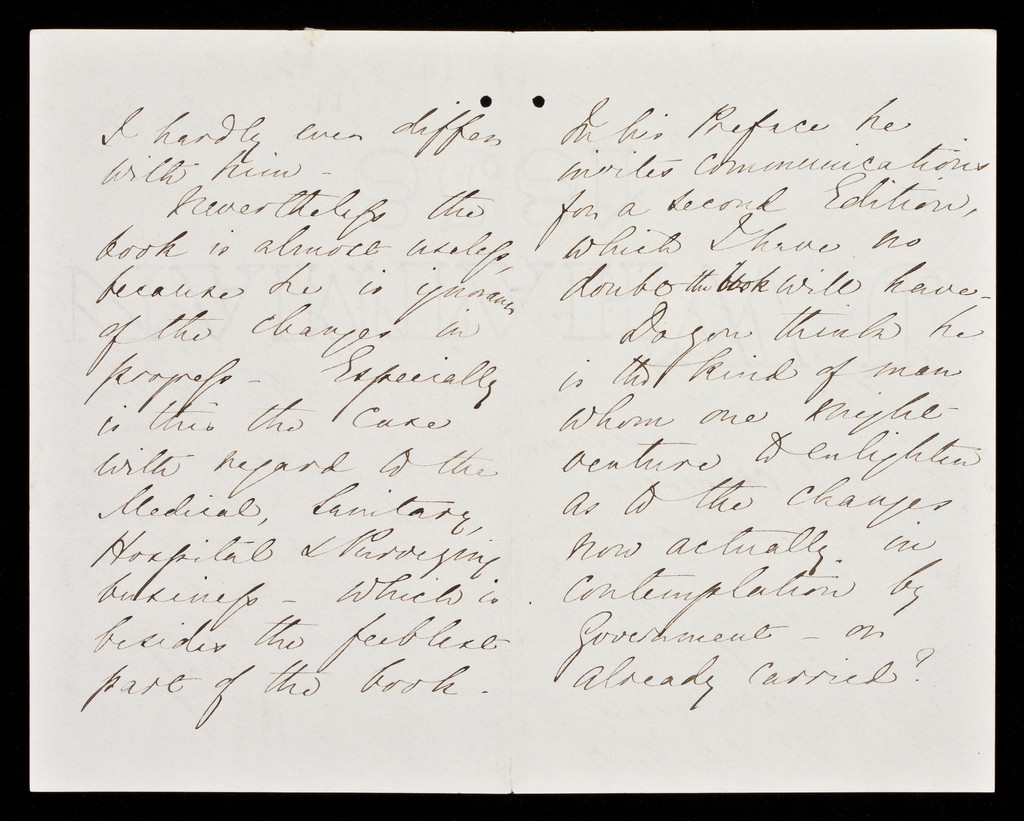 I hardly ever differ
with him -
Nevertheless the
book is almost useless,
because he is ignorant
of the changes in
progress - Especially
is this the case
with regard to the
Medical, Sanitary,
Hospital & Purveying
business - which is
besides the feeblest
part of the book -
In his Preface he
invites communications
for a second Edition,
which I have no
doubt the book will have -
Do you think he
is the kind of man
whom one might
venture to enlighten
as to the changes
now actually in
contemplation by
Government - or
already carried?